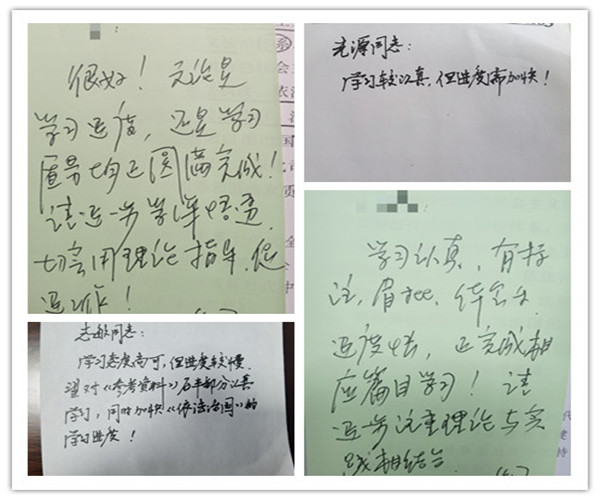 很好！无论是
学习进度，还是学习
质量均已圆满完成！
请进一步学深悟透，
切实用理论指导、促
进工作！
志敏同志：
学习态度尚可，但进度较慢
望对《参考资料》后半部分认真
学习，同时加快《依法治国》的
学习进度！
光源同志：
学习较认真，但进度需加快！
学习认真，有标
注、眉批、体会，
进度快，已完成相
应篇目学习！请
进一步注重理论与实
践相结合